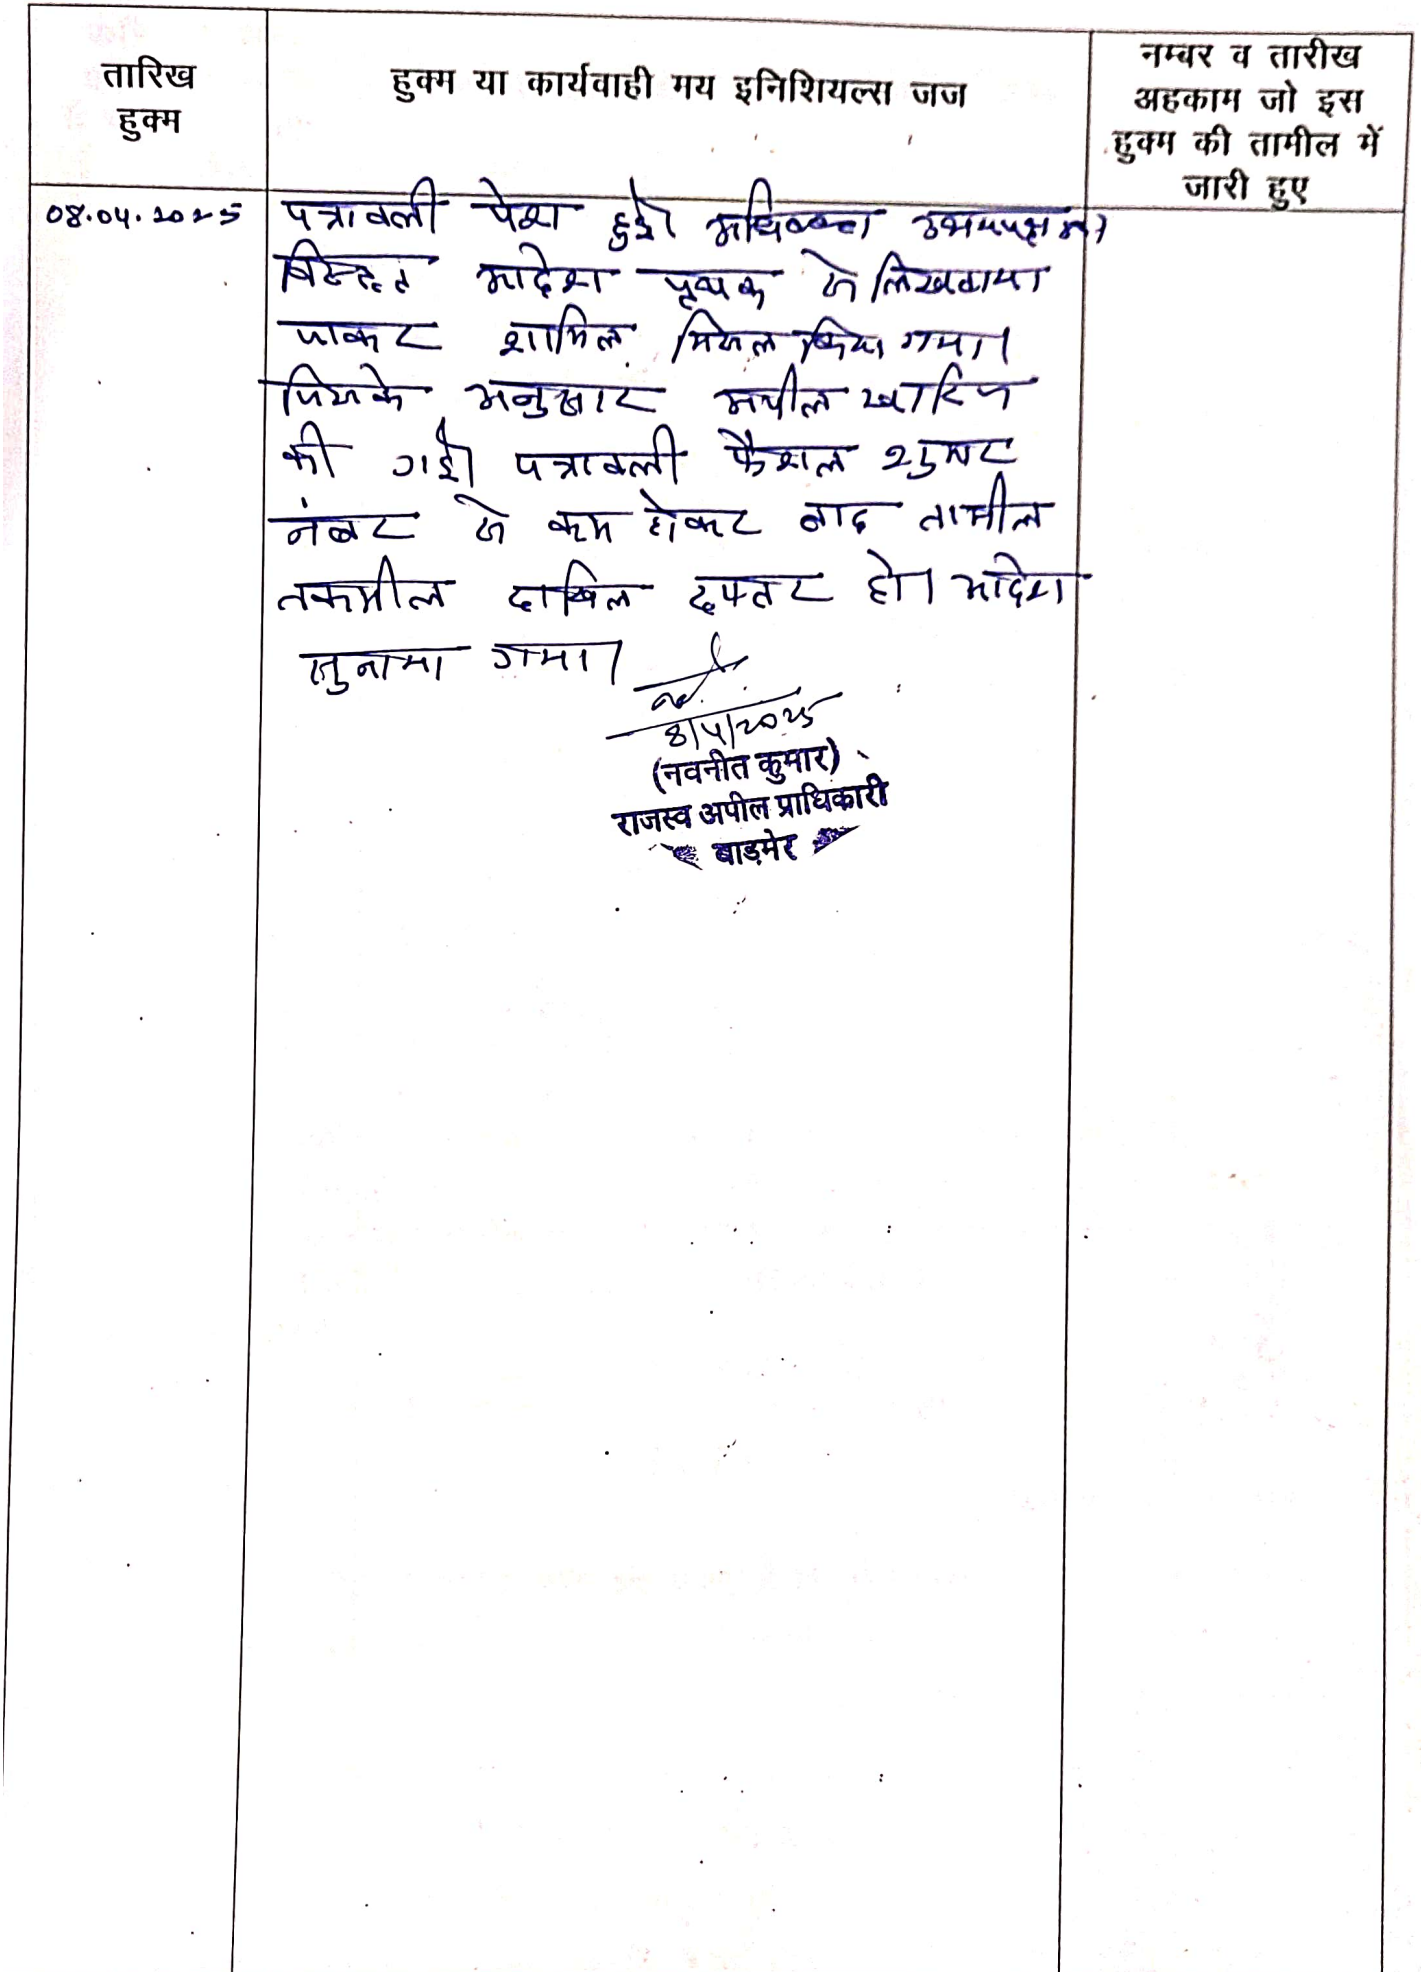 तारिख
हुक्म
हुक्म या कार्यवाही मय इनिशियल्स जज
नम्बर व तारीख
अहकाम जो इस
हुक्म की तामील में
जारी हुए
08.04.2025
पत्रावली पेश हुई। अधिवक्ता उभयपक्ष
विस्तृत आदेश पृथक से लिखवाया
जाकर शामिल मिसल किया गया।
जिसके अनुसार अपील खारिज
की गई। पत्रावली फैसल शुमार
नंबर से कम होकर बाद तामील
तकमील दाखिल दफ्तर हो। आदेश
सुनाया गया।
8/4/2025
(नवनीत कुमार)
राजस्व अपील प्राधिकारी
बाड़मेर